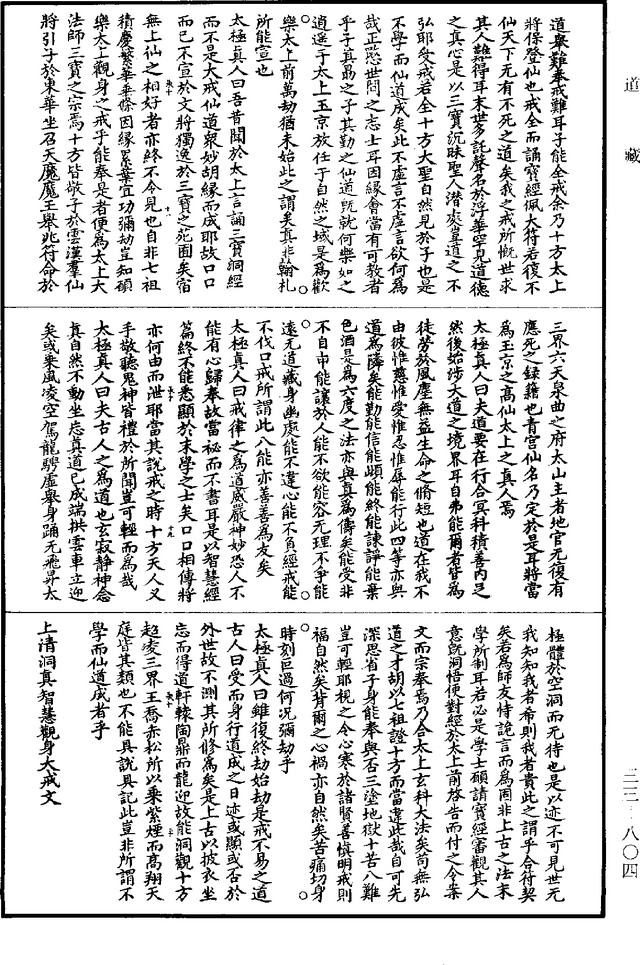 道藏
道舉難奉戒難耳子能全戒余乃十方太上
將保登仙也戒全而誦寶經佩大符若復不
仙天下无有不死之道矣我之戒所慨世求
其人難得耳末世多託聲名於浮華罕見道德
之真心是以三寶沉昧聖人潛處豈道之不
弘耶受戒若全十方大聖自然見於子也是
不學而仙道成矣此不虛言不虛言欲何為
哉正愍世間之志士耳因緣會當有可教者
乎子其勗之子其勤之仙道既就何樂如之
逍遥乎太上玉京放任于自然之域是為歡
樂太上前萬劫猶未始此之謂矣真非翰札
所能宣也
太極真人曰吾昔聞於太上言誦三寶洞經
而不是大戒仙道眾妙胡緣而成耶故口口
而已不宣於文將獨逸於三寶之苑囿矣宿
無上仙之相好者亦終不令見也自非七祖
積慶繁華垂條因緣累葉宜功彌劫豈知碩
樂太上觀身之戒乎能奉是者便為太上大
法師三寶之宗焉十方皆敬子於雲漢羣仙
將引子於東華坐召天魔魔王舉兆符命於
三界六天泉曲之府太山主者地官无復有
應死之録籍也青宫仙名乃定於是耳將當
為玉京之高仙太上之真人焉
太極真人曰夫道要在行合冥科積善内足
然後始涉大道之境界耳自弗能爾者皆為
徒勞於風塵無益生命之脩短也道在我不
由彼惟慈惟愛惟忍惟辱能行此四等亦與
道為隣矣能勤能信能頗能終能諫諍能棄
色酒是為六度之法亦與真為儔矣能受非
不自申能讓於人能不欲能容无理不爭能
遠无道藏身幽處能不違心能不負經戒能
不伐口戒所謂此八能亦善善為友矣
太極真人曰戒律之為道威嚴神妙恐人不
能有心歸奉故當祕而不書耳是以智慧經
篇終不能悉顯於末學之士矣口口相傳將
亦何由而泄耶當其說戒之時十方天人叉
手敬聽鬼神皆禮於所聞豈可輕而為哉
太極真人曰夫古人之為道也玄寂靜神念
真自然不動坐忘真道已成端拱雲車立迎
矣或乘風凌空駕龍騁虛舉身踊无飛昇太
極體於空洞而无待也是以迹不可見世无
我知知我者希則我者貴此之謂乎合符契
矣若為師友恃詭言而為罔非上古之法末
學所制耳若必是學士碩請寶經審觀其人
意既洞悟便對經於太上前啓告而付之令案
文而宗奉焉乃合太上玄科大法矣苟無弘
道之才胡以七祖證十方而當違此哉自可先
深思省子身能奉與否三塗地獄十苦八難
豈可輕耶視之令心寒於諸賢善慎明戒則
福自然矣背爾之心禍亦自然矣苦痛切身
時刻巨過何況彌劫乎
太極真人曰雖復終劫始劫是戒不易之道
古人曰受而身行道成之日迹或顯或否於
外世故不測其所修為矣是上古以披衣坐
忘而得道軒轅陶鼎而龍迎故能洞觀十方
超凌三界王喬赤松所以乘紫煙而高翔天
庭皆其類也不能具說具記此豈非所謂不
學而仙道成者乎
上清洞真智慧觀身大戒文
三三—八〇四